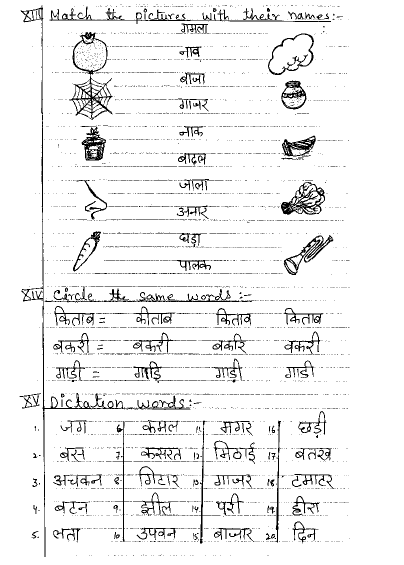 XIII Match the pictures with their names:-
गमला
नाव
बाजा
गाजर
नाक
बादल
जाला
अनार
घड़ा
पालक
XIV Circle the same words:-
किताब = कीताब किताव किताब
बकरी = बकरी बकरि वकरी
गाड़ी = गाड़ि गाड़ी गाडी
XV Dictation words:-
1. जग 6. कमल 11. मगर 16. छड़ी
2. बस 7. कसरत 12. मिठाई 17. बतख
3. अचकन 8. गिटार 13. गाजर 18. टमाटर
4. बटन 9. झील 14. परी 19. हीरा
5. लता 10. उपवन 15. बाजार 20. दिन